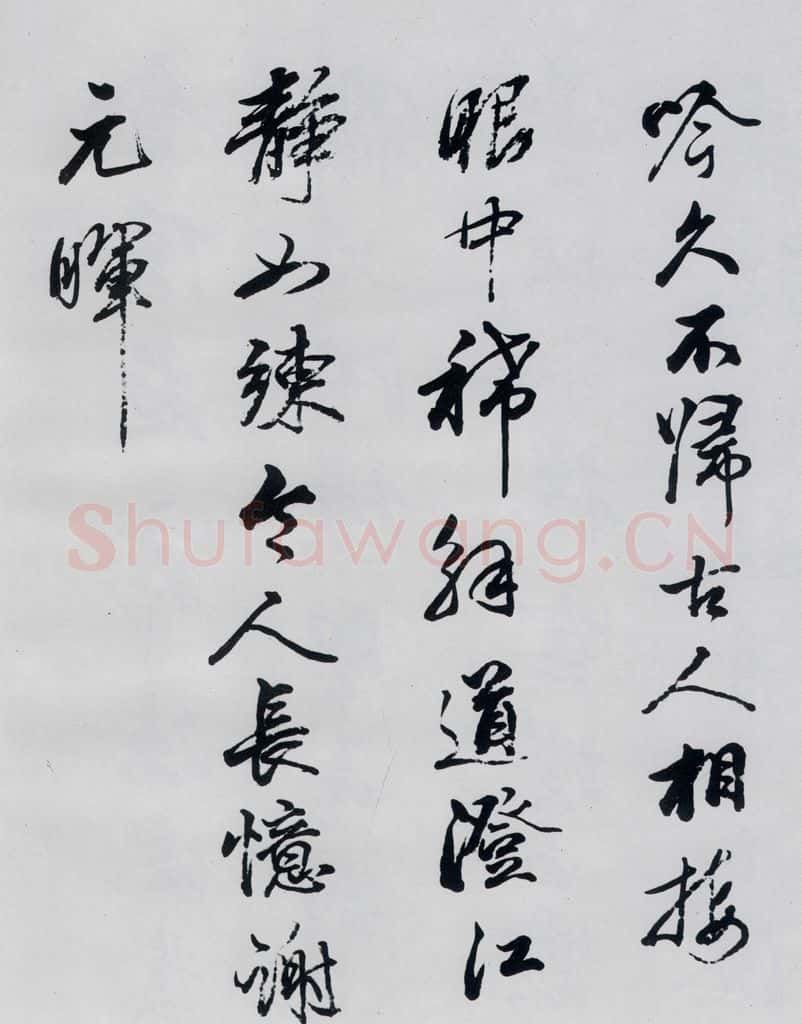 吟久不歸古人相接
眼中稀解道澄江
静如練令人長憶謝
元暉
Shufawang.CN